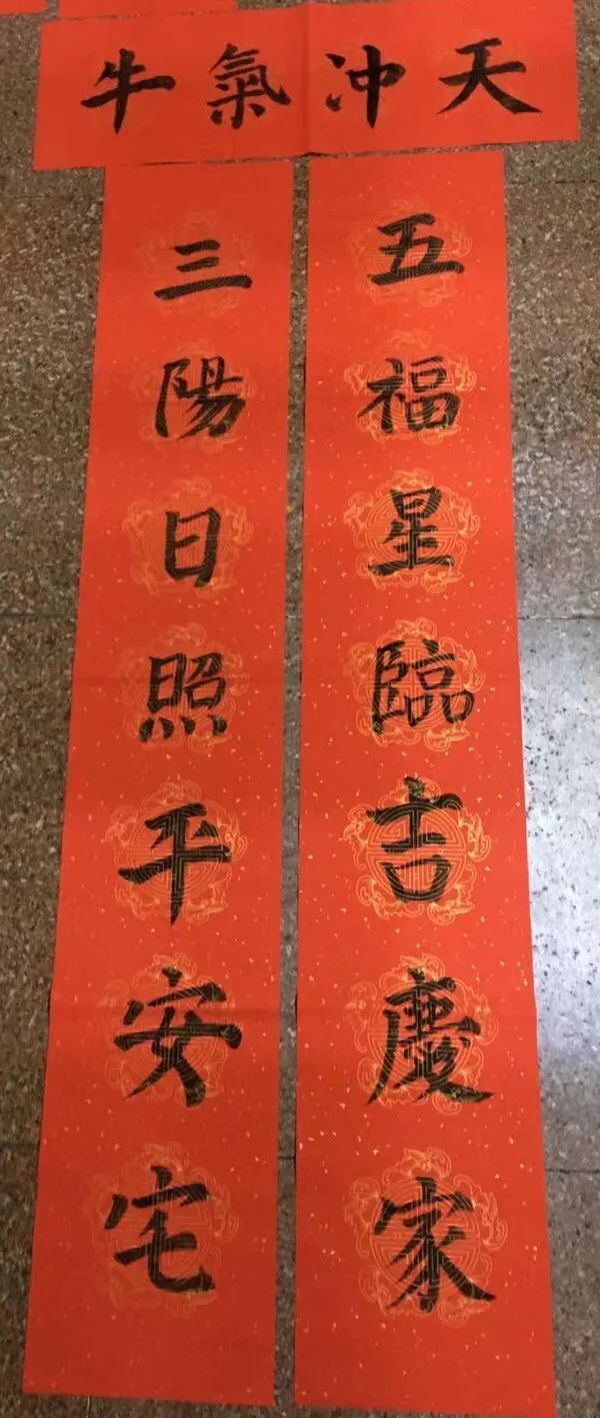 牛氣冲天
三陽日照平安宅
五福星臨吉慶家